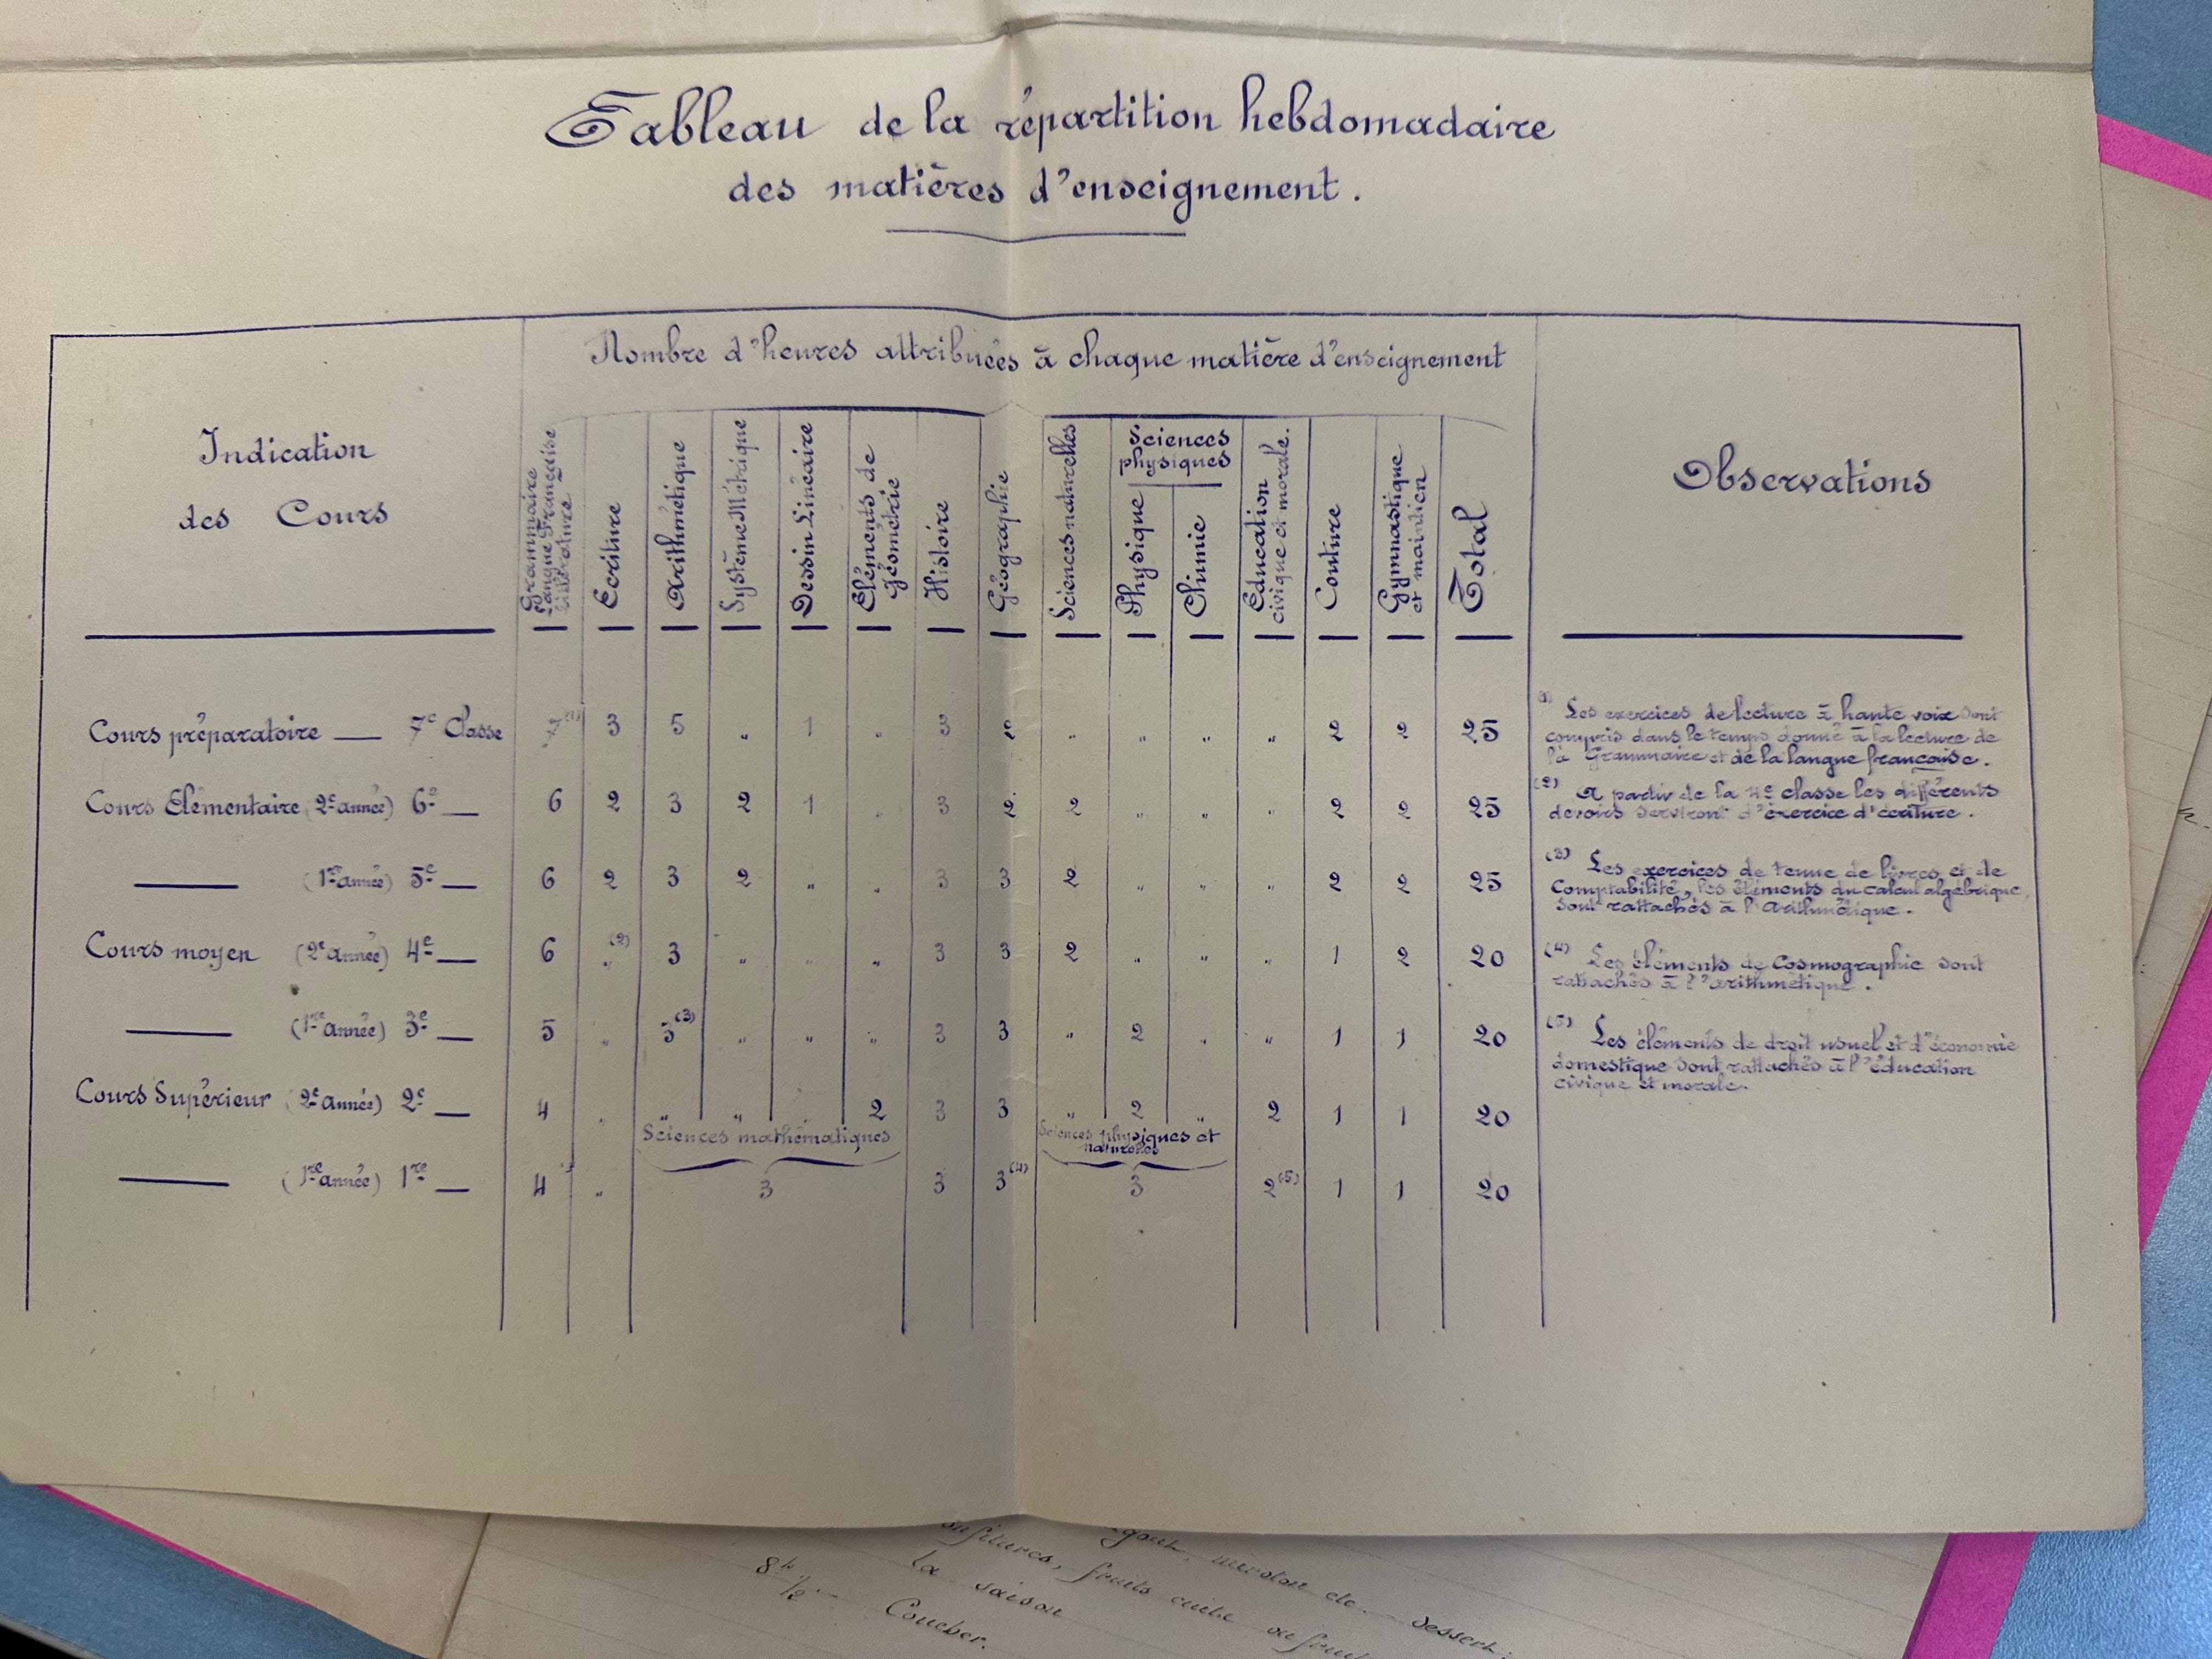 Tableau de la répartition hebdomadaire
des matières d'enseignement.
Nombre d'heures attribuées à chaque matière d'enseignement
Indication
des Cours
Grammaire
Langue Française
Littérature
Ecriture
Arithmétique
Système Métrique
Dessin Linéaire
Eléments de
géométrie
Histoire
Géographie
Sciences naturelles
Sciences
physiques
Physique
Chimie
Education
civique et morale.
Couture
Gymnastique
et maintien
Total
Observations
Cours préparatoire — 7e Classe (1) 3 5 " 1 " 3 2 " " " " 2 2 25
Cours Elémentaire (2e année) 6e — 6 2 3 2 1 " 3 2 2 " " " 2 2 25
— (1re année) 5e — 6 2 3 2 " " 3 3 2 " " " 2 2 25
Cours moyen (2e année) 4e — 6 " (2) 3 " " " 3 3 2 " " " 1 2 20
— (1re année) 3e — 5 " 5 (3) " " " 3 3 " 2 " " 1 1 20
Cours Supérieur (2e année) 2e — 4 " " " 2 3 3 " 2 " 2 1 1 20
Sciences mathématiques
Sciences physiques et
naturelles
— (1re année) 1re — 4 " 3 3 3 (4) 3 2 (5) 1 1 20
(1) Les exercices de lecture à haute voix sont
compris dans le temps donné à la lecture de
la Grammaire et de la langue française.
(2) A partir de la 4e classe les différents
devoirs serviront d'exercice d'écriture.
(3) Les exercices de tenue de livres et de
Comptabilité, les éléments du calcul algébrique
sont rattachés à l'Arithmétique.
(4) Les éléments de Cosmographie sont
rattachés à l'arithmétique.
(5) Les éléments de droit usuel et d'économie
domestique sont rattachés à l'éducation
civique et morale.
dessert:
fruits cuits ou
la saison
8h 1/2 - Coucher.